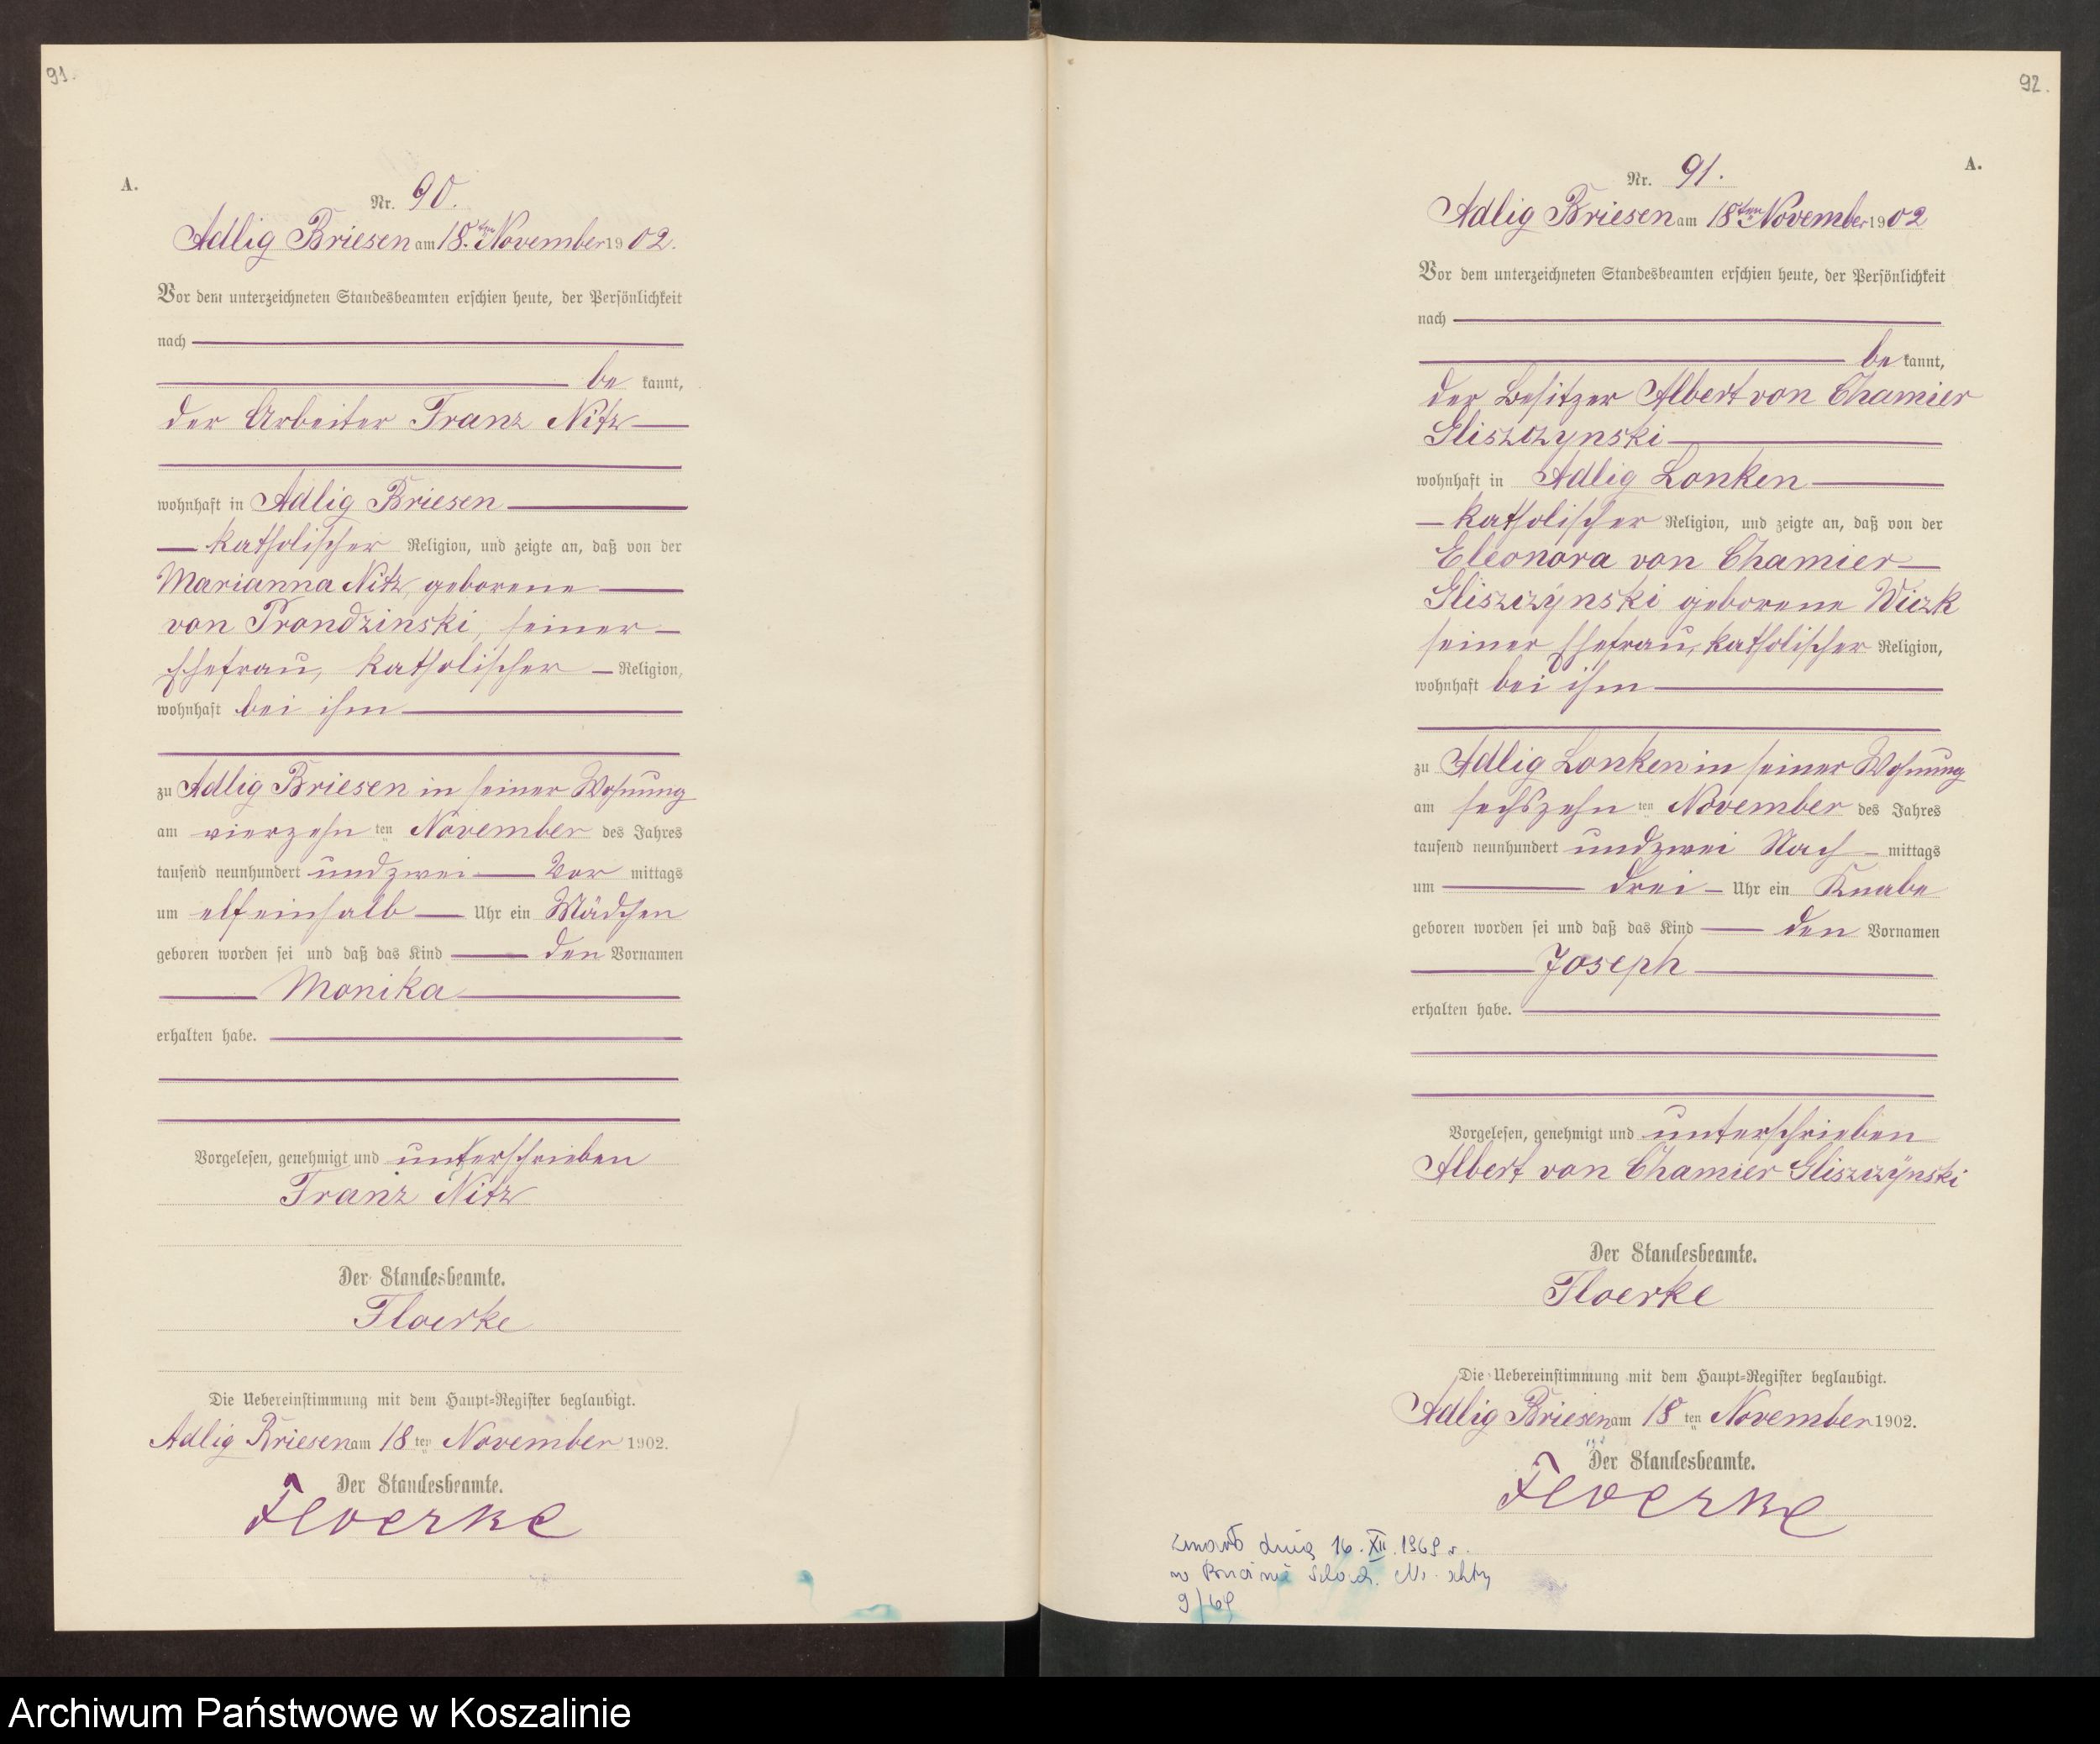 91.
A.
Nr. 90.
Adlig Briesen am 18.ten November 1902.
Vor dem unterzeichneten Standesbeamten erschien heute, der Persönlichkeit
nach
be kannt,
der Arbeiter Franz Nitz
wohnhaft in Adlig Briesen
katholischer Religion, und zeigte an, daß von der
Marianna Nitz, geborene
von Prondzinski, seiner
Ehefrau, katholischer Religion,
wohnhaft bei ihm
zu Adlig Briesen in seiner Wohnung
am vierzehn ten November des Jahres
tausend neunhundert und zwei Vor mittags
um elf einhalb Uhr ein Mädchen
geboren worden sei und daß das Kind den Vornamen
Monika
erhalten habe.
Vorgelesen, genehmigt und unterschrieben
Franz Nitz
Der Standesbeamte.
Floerke
Die Uebereinstimmung mit dem Haupt-Register beglaubigt.
Adlig Briesen am 18 ten November 1902.
Der Standesbeamte.
Floerke
92.
A.
Nr. 91.
Adlig Briesen am 18ten November 1902
Vor dem unterzeichneten Standesbeamten erschien heute, der Persönlichkeit
nach
be kannt,
der Besitzer Albert von Chamier
Gliszczynski
wohnhaft in Adlig Lonken
katholischer Religion, und zeigte an, daß von der
Eleonora von Chamier
Gliszczynski geborene Wiczk
seiner Ehefrau, katholischer Religion,
wohnhaft bei ihm
zu Adlig Lonken in seiner Wohnung
am sechszehn ten November des Jahres
tausend neunhundert und zwei Nach mittags
um drei Uhr ein Knabe
geboren worden sei und daß das Kind den Vornamen
Joseph
erhalten habe.
Vorgelesen, genehmigt und unterschrieben
Albert von Chamier Gliszczynski
Der Standesbeamte.
Floerke
Die Uebereinstimmung mit dem Haupt-Register beglaubigt.
Adlig Briesen am 18 ten November 1902.
Der Standesbeamte.
Floerke
zmarł dnia 16.XII.1969 r.
w Szlach. Nr. aktu
9/69
Archiwum Państwowe w Koszalinie